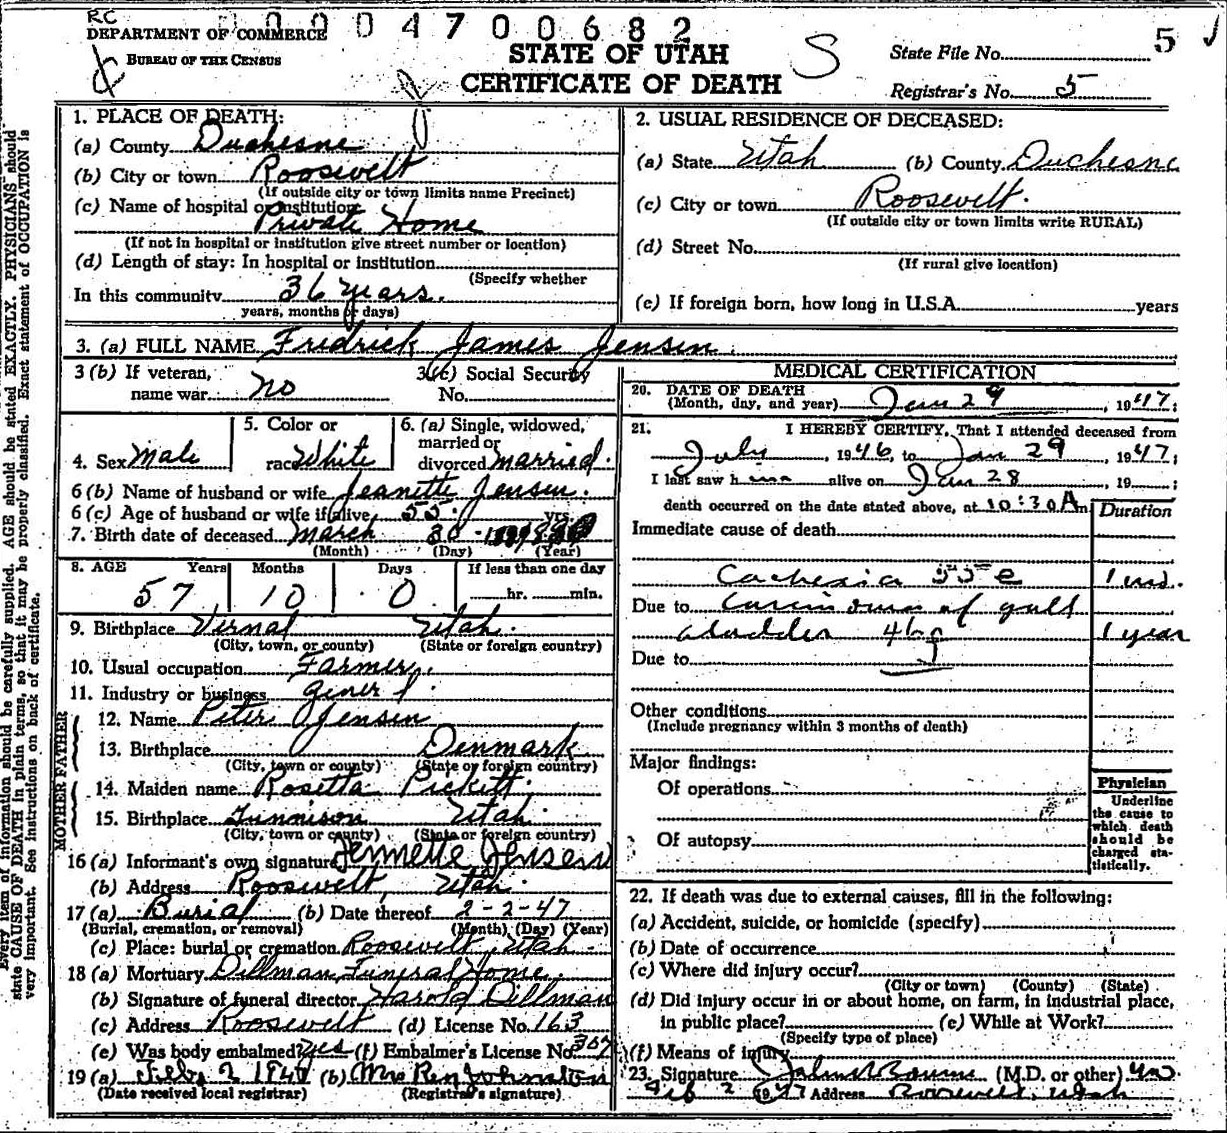 RC
DEPARTMENT OF COMMERCE
BUREAU OF THE CENSUS
0 0 0 0 4 7 0 0 6 8 2
STATE OF UTAH
CERTIFICATE OF DEATH
S
5
State File No.
Registrar's No. 5
Every item of information should be carefully supplied. AGE should be stated EXACTLY. PHYSICIANS should
state CAUSE OF DEATH in plain terms, so that it may be properly classified. Exact statement of OCCUPATION is
very important. See instructions on back of certificate.
1. PLACE OF DEATH:
(a) County Duchesne
(b) City or town Roosevelt
(If outside city or town limits name Precinct)
(c) Name of hospital or institution:
Private Home
(If not in hospital or institution give street number or location)
(d) Length of stay: In hospital or institution
(Specify whether
In this community 36 years.
years, months or days)
2. USUAL RESIDENCE OF DECEASED:
(a) State Utah (b) County Duchesne
(c) City or town Roosevelt.
(If outside city or town limits write RURAL)
(d) Street No.
(If rural give location)
(e) If foreign born, how long in U.S.A. years
3. (a) FULL NAME Fredrick James Jensen.
3 (b) If veteran,
name war no
3 (c) Social Security
No.
4. Sex Male
5. Color or
race White
6. (a) Single, widowed,
married or
divorced married.
6 (b) Name of husband or wife Jeanette Jensen.
6 (c) Age of husband or wife if alive 55. yrs.
7. Birth date of deceased March 30
(Month) (Day) (Year)
8. AGE Years Months Days If less than one day
57 10 0 hr. min.
9. Birthplace Vernal Utah.
(City, town, or county) (State or foreign country)
10. Usual occupation Farmer.
11. Industry or business
FATHER
12. Name Peter Jensen
13. Birthplace Denmark
(City, town or county) (State or foreign country)
MOTHER
14. Maiden name Rosetta Pickett.
15. Birthplace Gunnison Utah.
(City, town or county) (State or foreign country)
16 (a) Informant's own signature Jennette Jensen
(b) Address Roosevelt, Utah.
17 (a) Burial (b) Date thereof 2-2-47
(Burial, cremation, or removal) (Month) (Day) (Year)
(c) Place: burial or cremation Roosevelt, Utah.
18 (a) Mortuary Dillman Funeral Home.
(b) Signature of funeral director Harold Dillman
(c) Address Roosevelt (d) License No. 163
(e) Was body embalmed? yes (f) Embalmer's License No. 307
19 (a) Feb. 2 1947 (b) Mrs Ren Johnston
(Date received local registrar) (Registrar's signature)
MEDICAL CERTIFICATION
20. DATE OF DEATH
(Month, day, and year) Jan 29, 1947;
21. I HEREBY CERTIFY, That I attended deceased from
July, 1946, to Jan 29, 1947;
I last saw him alive on Jan 28, 19 ;
death occurred on the date stated above, at 10:30 A m.
Duration
Immediate cause of death
Cachexia 55 e 1 mo.
Due to Carcinoma of gall
bladder 46 1 year
Due to
Other conditions
(Include pregnancy within 3 months of death)
Major findings:
Of operations
Of autopsy
Physician
Underline
the cause to
which death
should be
charged sta-
tistically.
22. If death was due to external causes, fill in the following:
(a) Accident, suicide, or homicide (specify)
(b) Date of occurrence
(c) Where did injury occur?
(City or town) (County) (State)
(d) Did injury occur in or about home, on farm, in industrial place,
in public place? (e) While at Work?
(Specify type of place)
(f) Means of injury
23. Signature (M.D. or other) MD.
Feb 2 1947 Address Roosevelt, Utah